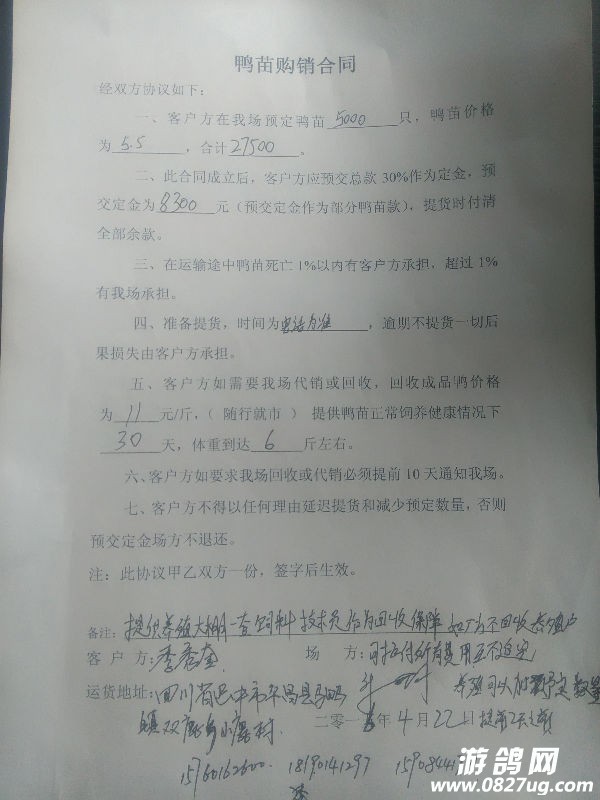 鸭苗购销合同
经双方协议如下：
一、客户方在我场预定鸭苗 5000 只，鸭苗价格
为 5.5 ，合计 27500 。
二、此合同成立后，客户方应预交总款30%作为定金，预
交定金为 8300 元（预交定金作为部分鸭苗款），提货时付清
全部余款。
三、在运输途中鸭苗死亡1%以内有客户方承担，超过1%
有我场承担。
四、准备提货，时间为 电话为准 ，逾期不提货一切后
果损失由客户方承担。
五、客户方如需要我场代销或回收，回收成品鸭价格
为 11 元/斤，（ 随行就市 ） 提供鸭苗正常饲养健康情况下
30 天，体重到达 6 斤左右。
六、客户方如要求我场回收或代销必须提前10天通知我场。
七、客户方不得以任何理由延迟提货和减少预定数量，否则
预交定金场方不退还。
注：此协议甲乙双方一份，签字后生效。
备注：提供养殖大棚一套饲料技术员作为回收保障 如厂方不回收养殖户
客 户 方： 场 方：可拒付所有费用
运货地址：四川省巴中市平昌县 养殖
镇双鹿乡小鹿村 二零一 年 4 月 22 日
15760162600 18190141297
游鸽网
www.0827ug.com